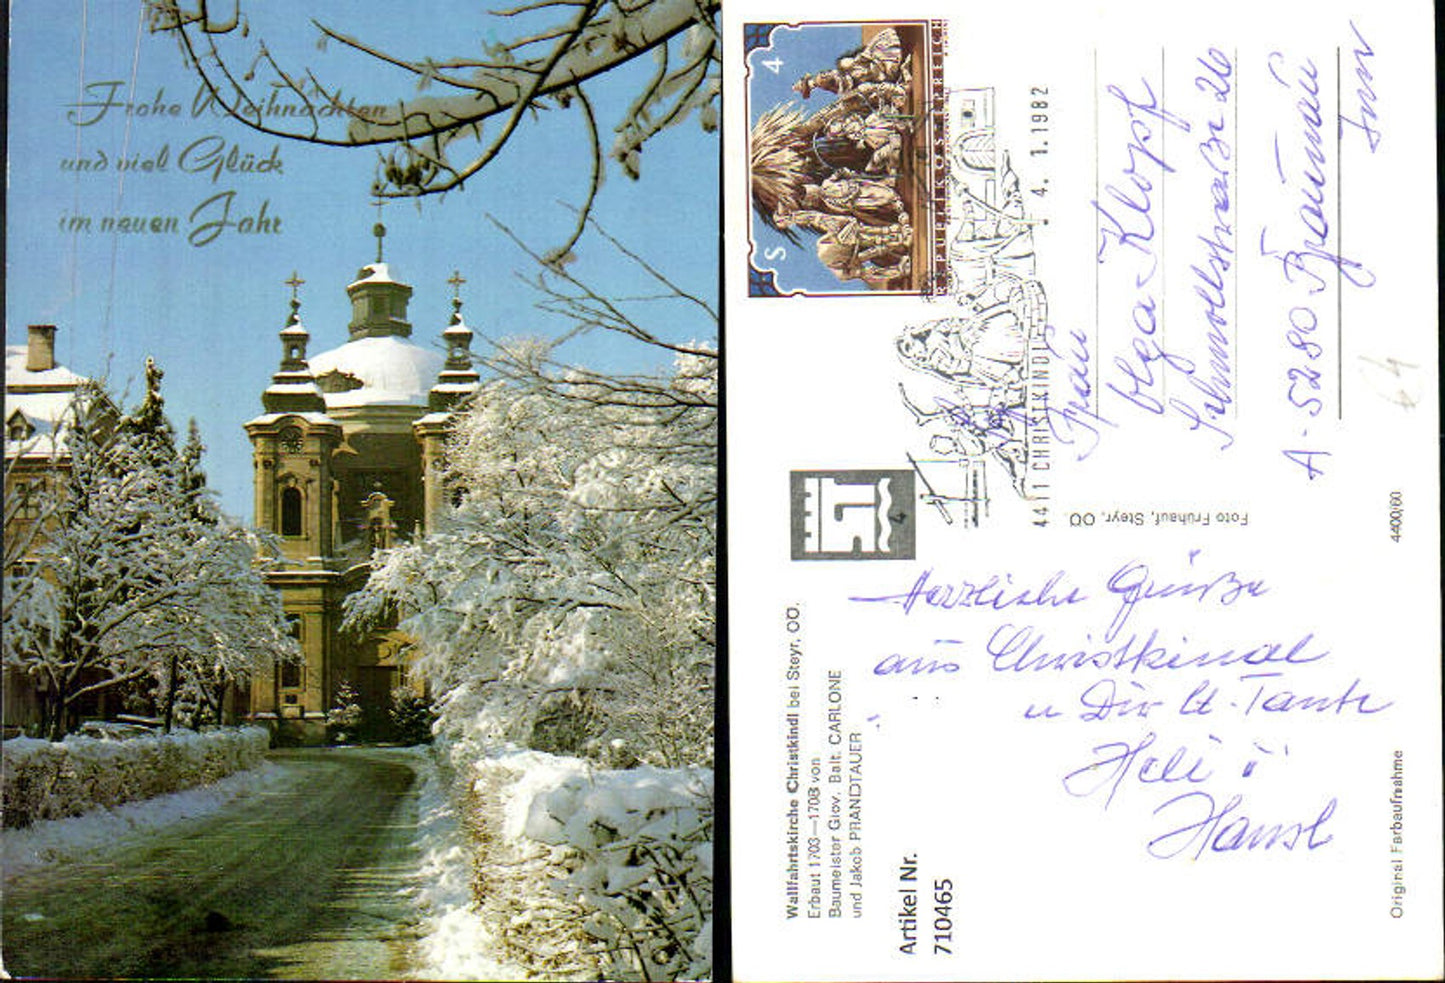 Frohe Weihnachten
und viel Glück
im neuen Jahr
S 4
REPUBLIK ÖSTERREICH
4411 CHRISTKINDL
4. 1. 1982
Frau
Olga Klopf
A-5280 Braunau
Inn
64
4
Foto Frühauf, Steyr, OÖ.
4400/60
Herzliche Grüße
aus Christkindl
u
Heli u
Hansl
Wallfahrtskirche Christkindl bei Steyr, OÖ.
Erbaut 1703—1708 von
Baumeister Giov. Bat. CARLONE
und Jakob PRANDTAUER
Artikel Nr.
710465
Original Farbaufnahme